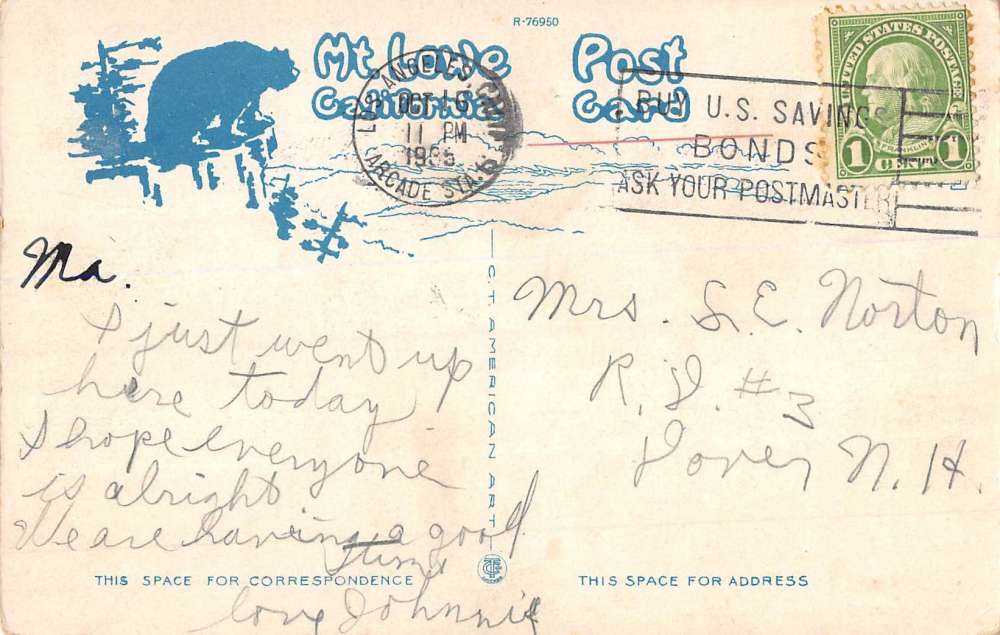 R-76950
Mt Lowe Post
California Card
LOS ANGELES, CALIF.
OCT 16
11 PM
ARCADE STA.
BUY U.S. SAVINGS
BONDS
ASK YOUR POSTMASTER
UNITED STATES POSTAGE
FRANKLIN
1 1
Ma.
I just went up
here today
I hope everyone
is alright
We are having a good
time
love Johnnie
C T AMERICAN ART
Mrs. S. E. Norton
R. D. #3
Dover N. H.
THIS SPACE FOR CORRESPONDENCE
THIS SPACE FOR ADDRESS